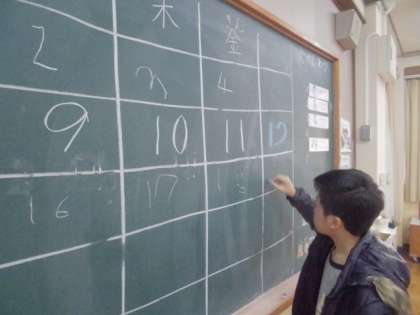 木 金
2 3 4
9 10 11 12
16 17 18